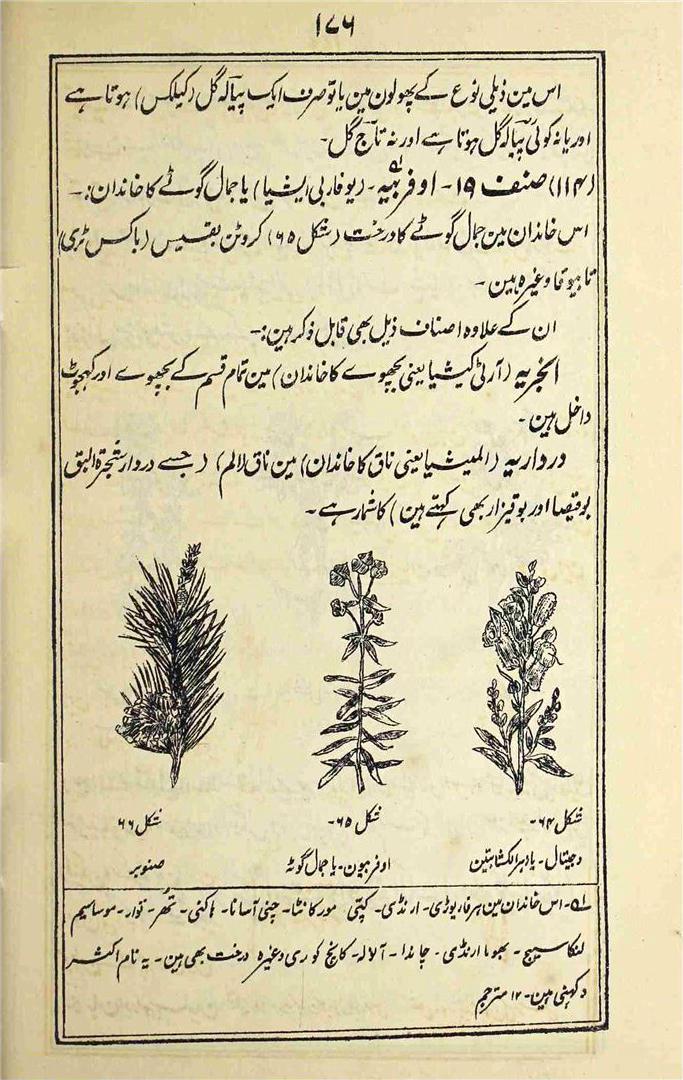 ۱۷۶
اس مین ذیلی نوع کے پھولون مین یا تو صرف ایک پیالۂ گل (کیلکس) ہوتا ہے
اور یا نہ کوئی پیالۂ گل ہوتا ہے اور نہ تاج گل۔
(۱۱۴) صنف ۱۹۔ اوفربیہ ۱؎۔ (یوفاربی ایشیا) یا جمال گوٹے کا خاندان:۔
اس خاندان مین جمال گوٹے کا درخت (شکل ۶۵) کروٹن بقیس (باکس ٹری)
تاپیوقا وغیرہ ہین۔
ان کے علاوہ اصناف ذیل بھی قابل ذکر ہین:۔
انجریہ (آرٹی کیشیا یعنی بچھوے کا خاندان) مین تمام قسم کے بچھوے اور
داخل ہین۔
درداریہ (المیشیا یعنی ناق کا خاندان) مین ناق (الم) (جسے دردار شجرۃ البق
بوقیصا اور بوقیزار بھی کہتے ہین) کا شمار ہے۔
شکل ۶۴۔
دجیتال۔ یا زہر الکشاتبین
شکل ۶۵۔
اوفربیون۔ یا جمال گوٹہ
شکل ۶۶
صنوبر
۱؎۔ اس خاندان مین ہرفاریوڑی۔ ارنڈی۔ کپتی مورکانٹا۔ چنی آسانا۔ ہاکنی۔ تھر۔ توار۔ موساسیم
لنکاسیج۔ بھوما ارنڈی۔ چاندا۔ آلالہ۔ کانچ کوری وغیرہ درخت بھی ہین۔ یہ نام اکثر
دکھنی ہین۔ ۱۲ مترجم